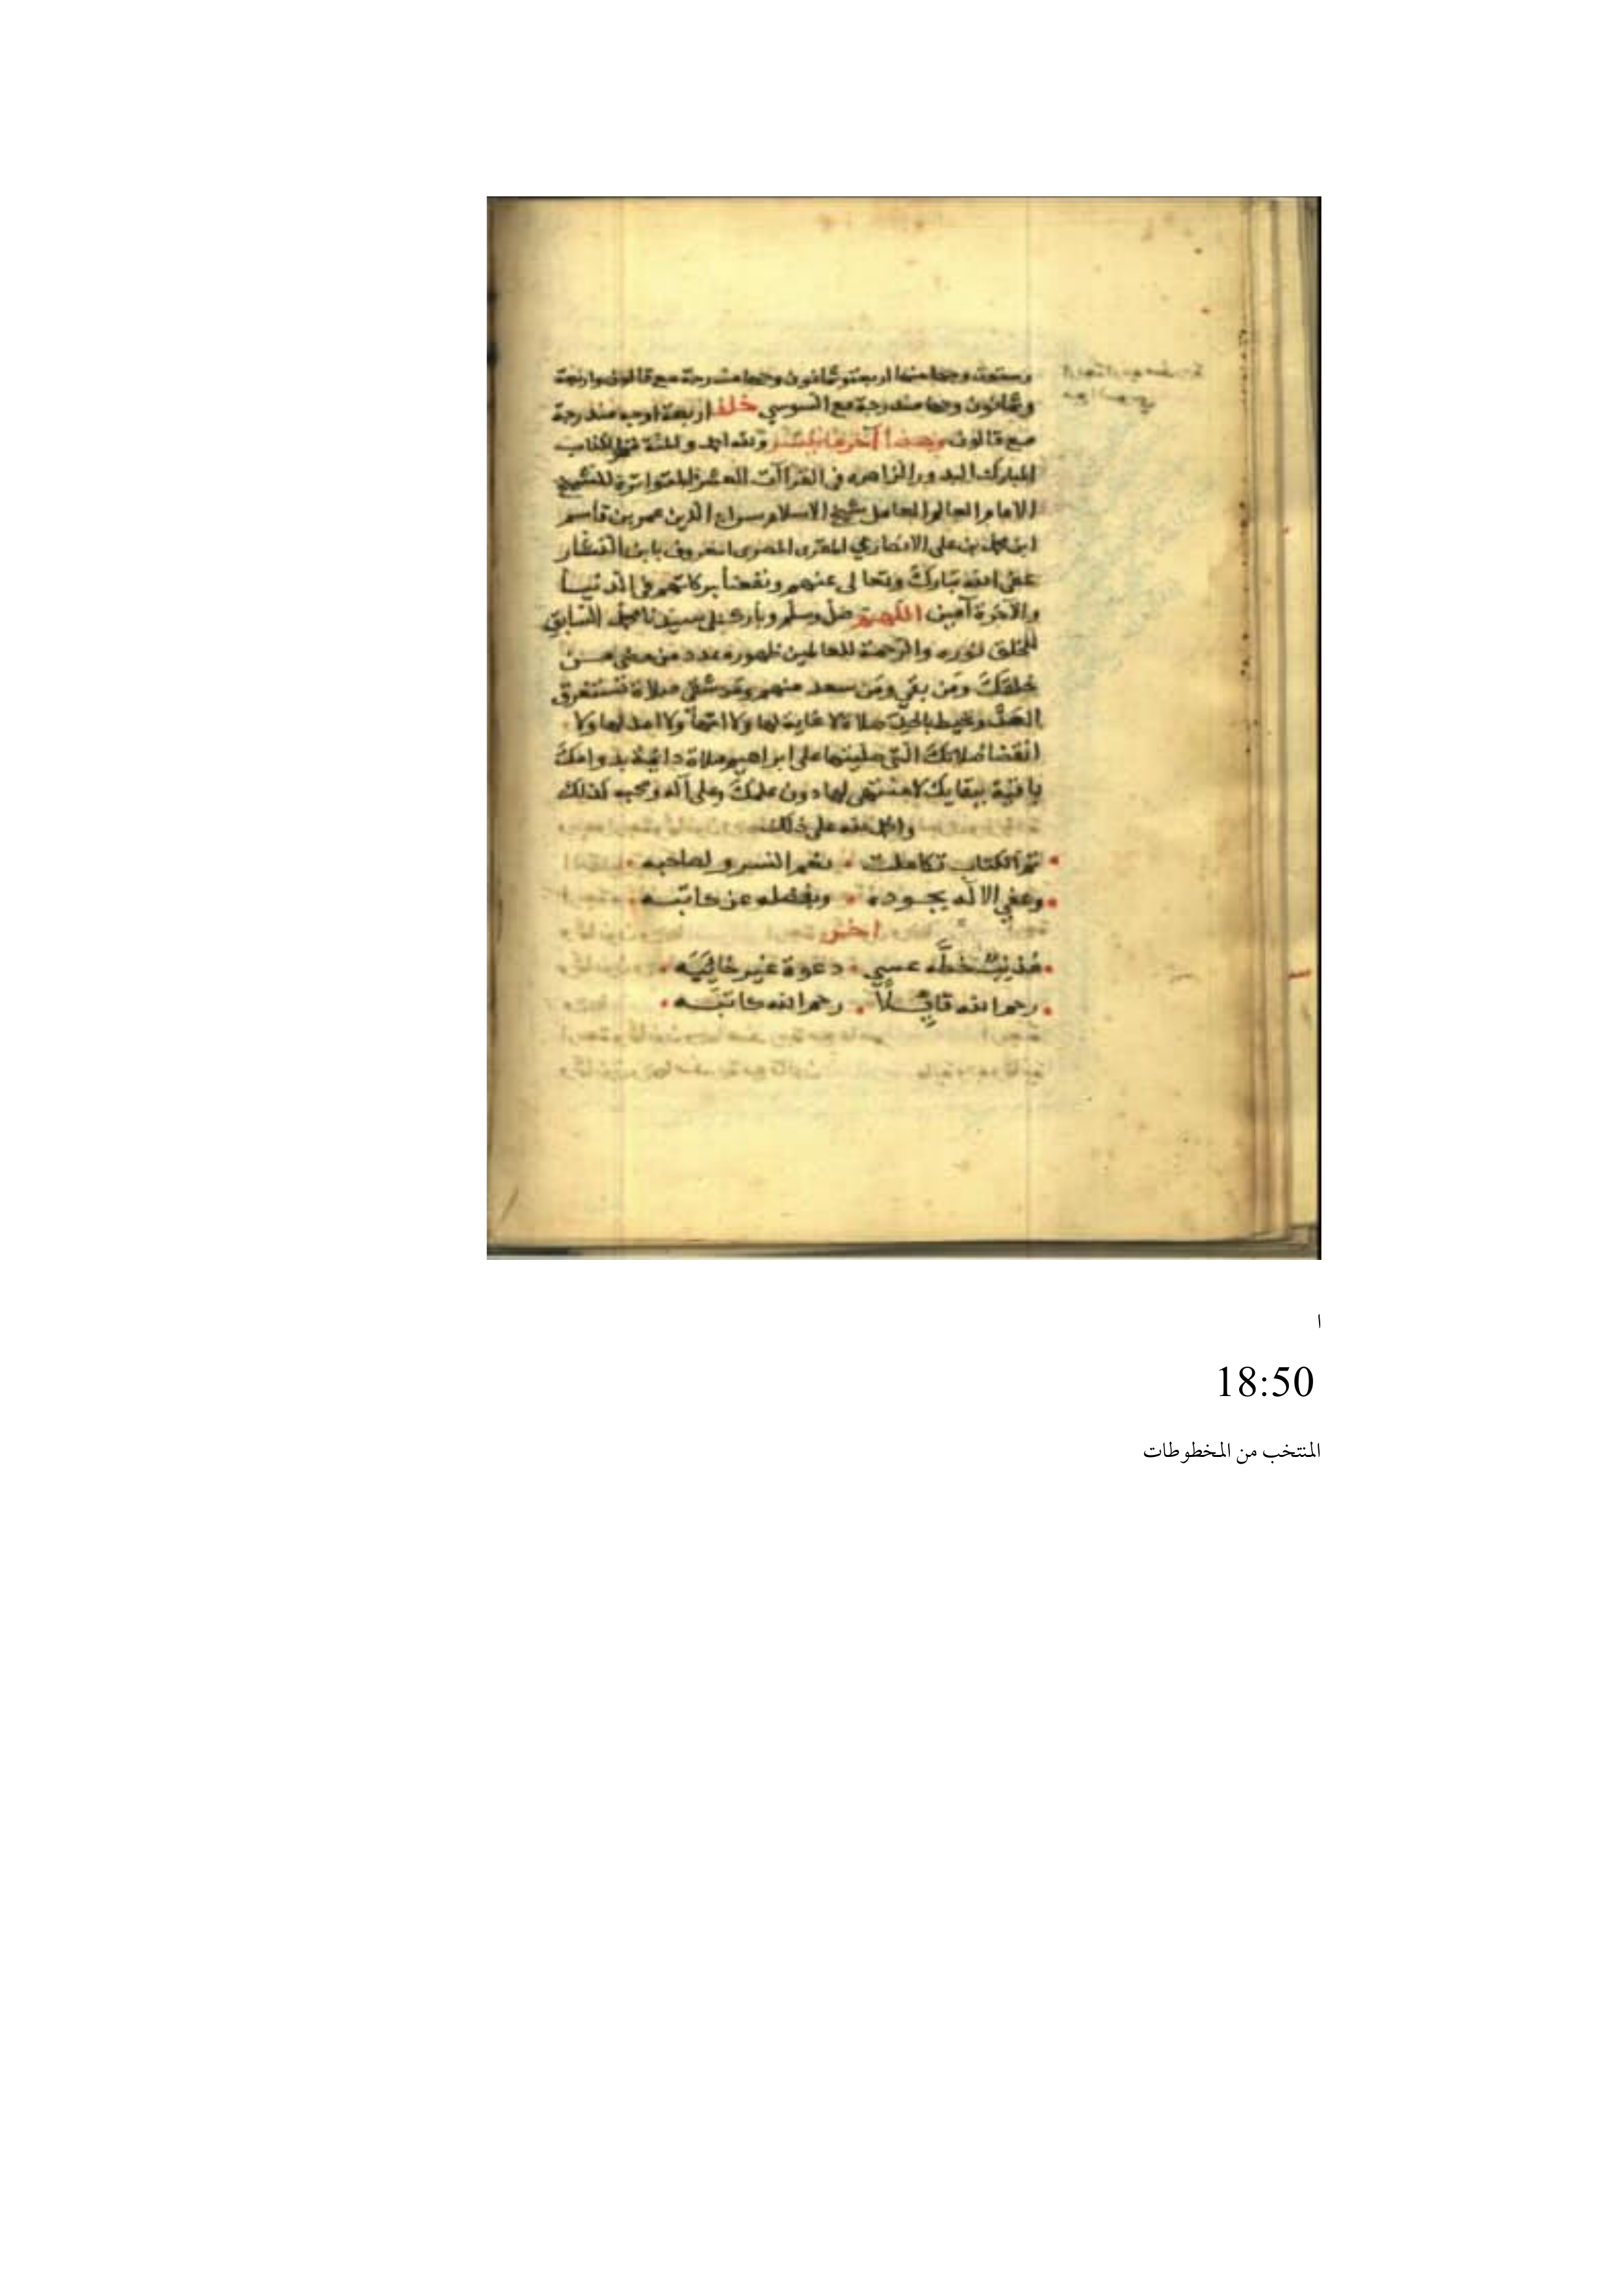 وستون وجها منها اربعة وثمانون وجها مندرجة مع قالون واربعة
وثمانون وجها مندرجة مع السوسي خلف اربعة اوجه مندرجة
مع قالون وهذا آخر ولله الحمد والمنة الكتاب
المبارك البدور الزاهره في القراآت العشر المتواترة للشيخ
الامام العالم العامل شيخ الاسلام سراج الدين عمر بن قاسم
ابن محمد بن على الانصاري المقرى المصرى المعروف بابن النشار
عفى الله تبارك وتعالى عنهم ونفعنا ببركاتهم فى الدنيا
والآخرة آمين اللهم صل وسلم وبارك على سيدنا محمد السابق
للخلق نوره والرحمة للعالمين ظهوره عدد من مضى من
خلقك ومن بقي ومن سعد منهم ومن شقى صلاة تستغرق
العد وتحيط بالحد صلاة لا غاية لها ولا انتها ولا امد لها ولا
انقضا صلاتك التى صليتها على ابراهيم صلاة دائمة بدوامك
باقية ببقايك لا منتهى لها دون علمك وعلى آله وصحبه كذلك
والحمد لله على ذلك
تم الكتاب تكاملت نعم السرور لصاحبه
وعفى الاله بجوده وبفضله عن كاتبه
اخر
مذنب خطه عسى دعوة غير خائبه
رحم الله قائلاً رحم الله كاتبه
ا
18:50
المنتخب من المخطوطات